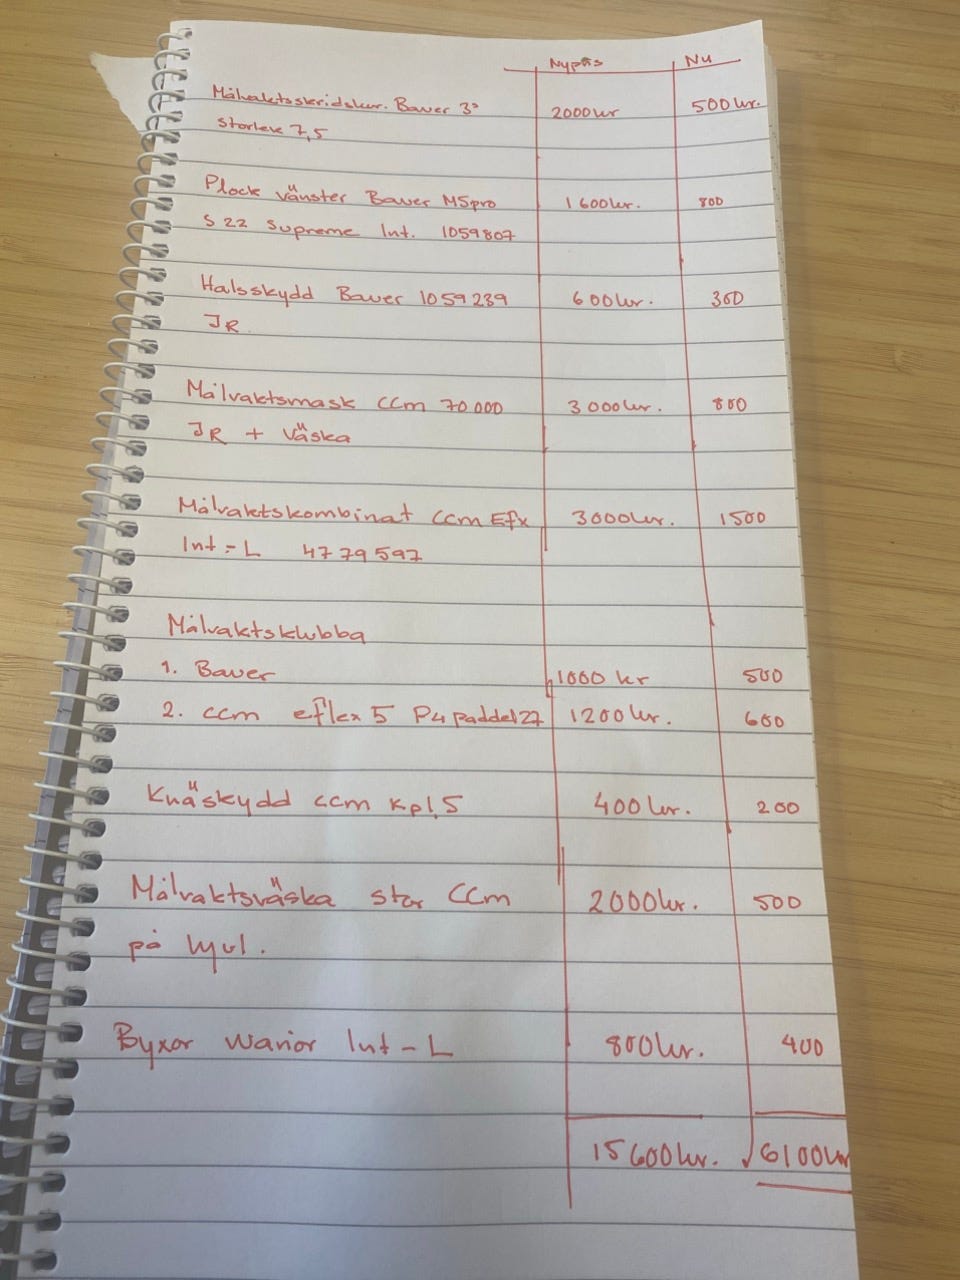 Nypris Nu
Målvaktsskridskor. Bauer 3s 2000kr 500kr.
storlek 7,5
Plock vänster Bauer M5pro 1600kr. 800
S 22 Supreme Int. 1059807
Halsskydd Bauer 1059239 600kr. 300
JR.
Målvaktsmask CCM 70000 3000kr. 800
JR + Väska
Målvaktskombinat CCM Efx 3000kr. 1500
Int - L 4779597
Målvaktsklubba
1. Bauer 1000 kr 500
2. ccm eflex 5 P4 paddel 27 1200kr. 600
Knäskydd ccm Kp1,5 400kr. 200
Målvaktsväska stor CCM 2000kr. 500
på hjul.
Byxor Warior Int - L 800kr. 400
15600kr. 6100kr